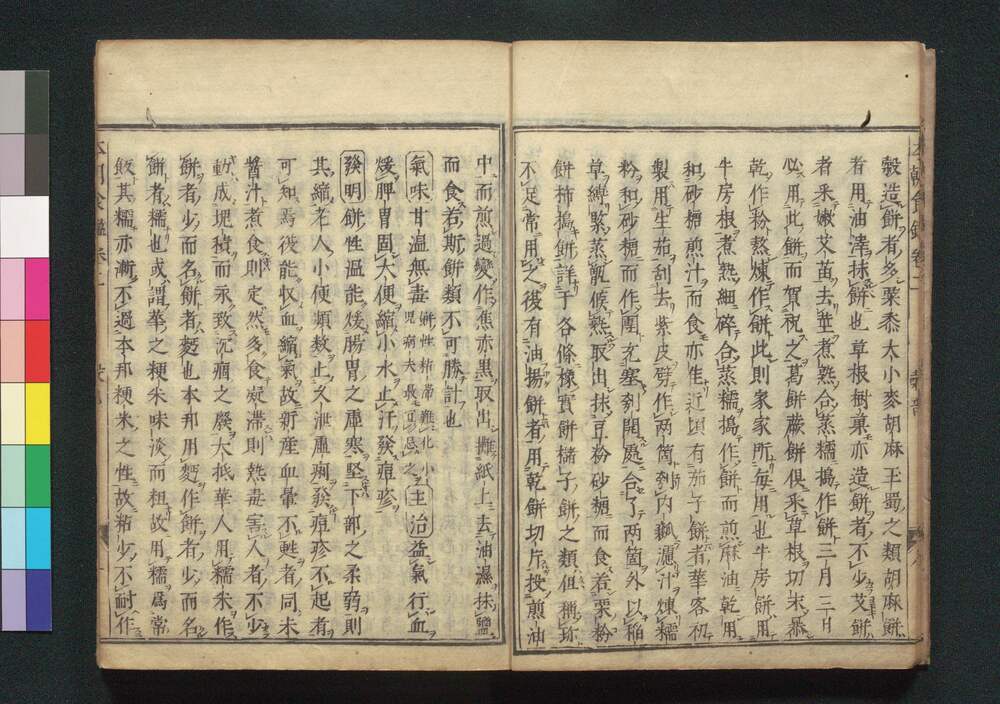 穀造餅者多粟黍大小麥胡麻玉蜀之類胡麻餅
者用油澤抹餅也草根樹菓亦造餅者不少艾餅
者采嫩艾苗去莖煮熟合蒸糯搗作餅三月三日
必用此餅而賀祝之葛餅蕨餅俱采草根切末暴
乾作粉熬煉作餅此則家家所毎用也牛房餅用
牛房根煮熟細碎合蒸糯搗作餅而煎麻油乾用
和砂糖煎汁而食亦佳近頃有茄子餅者華客初
製用生茄刮去紫皮劈作兩箇刳内瓤漉汁煉糯
粉和砂糖而作團充塞刳開處合了兩箇外以稲
草縛緊蒸甑候熱取出抹豆粉砂糖而食若栗粉
餅柿搗餅詳于各條橡實餅櫧子餅之類但稱珍
不足常用之後有油揚餅者用乾餅切片投煎油
中而煎過變作焦赤黒取出攤紙上去油濕抹鹽
而食若斯餅類不可勝計也
氣味甘溫無毒餅性粘滯難化小兒病夫最可忌之主治益氣行血
煖脾胃固大便縮小水止汗發痘疹
發明餅性溫能煖腸胃之虛寒堅下部之柔弱則
其縮老人小便頻數止久泄虛痢發痘疹不起者
可知焉後能収血縮氣故新産血暈不甦者同未
醬汁煮食則定然多食凝滯則熱毒害人者不少
動成塊積而永致沉痼之癈大抵華人用糯米作
餅者少而名餅者麪也本邦用麪作餅者少而名
餅者糯也或謂華之粳米味淡而粗故用糯爲常
飯其糯亦漸不過本邦粳米之性故粘少不耐作